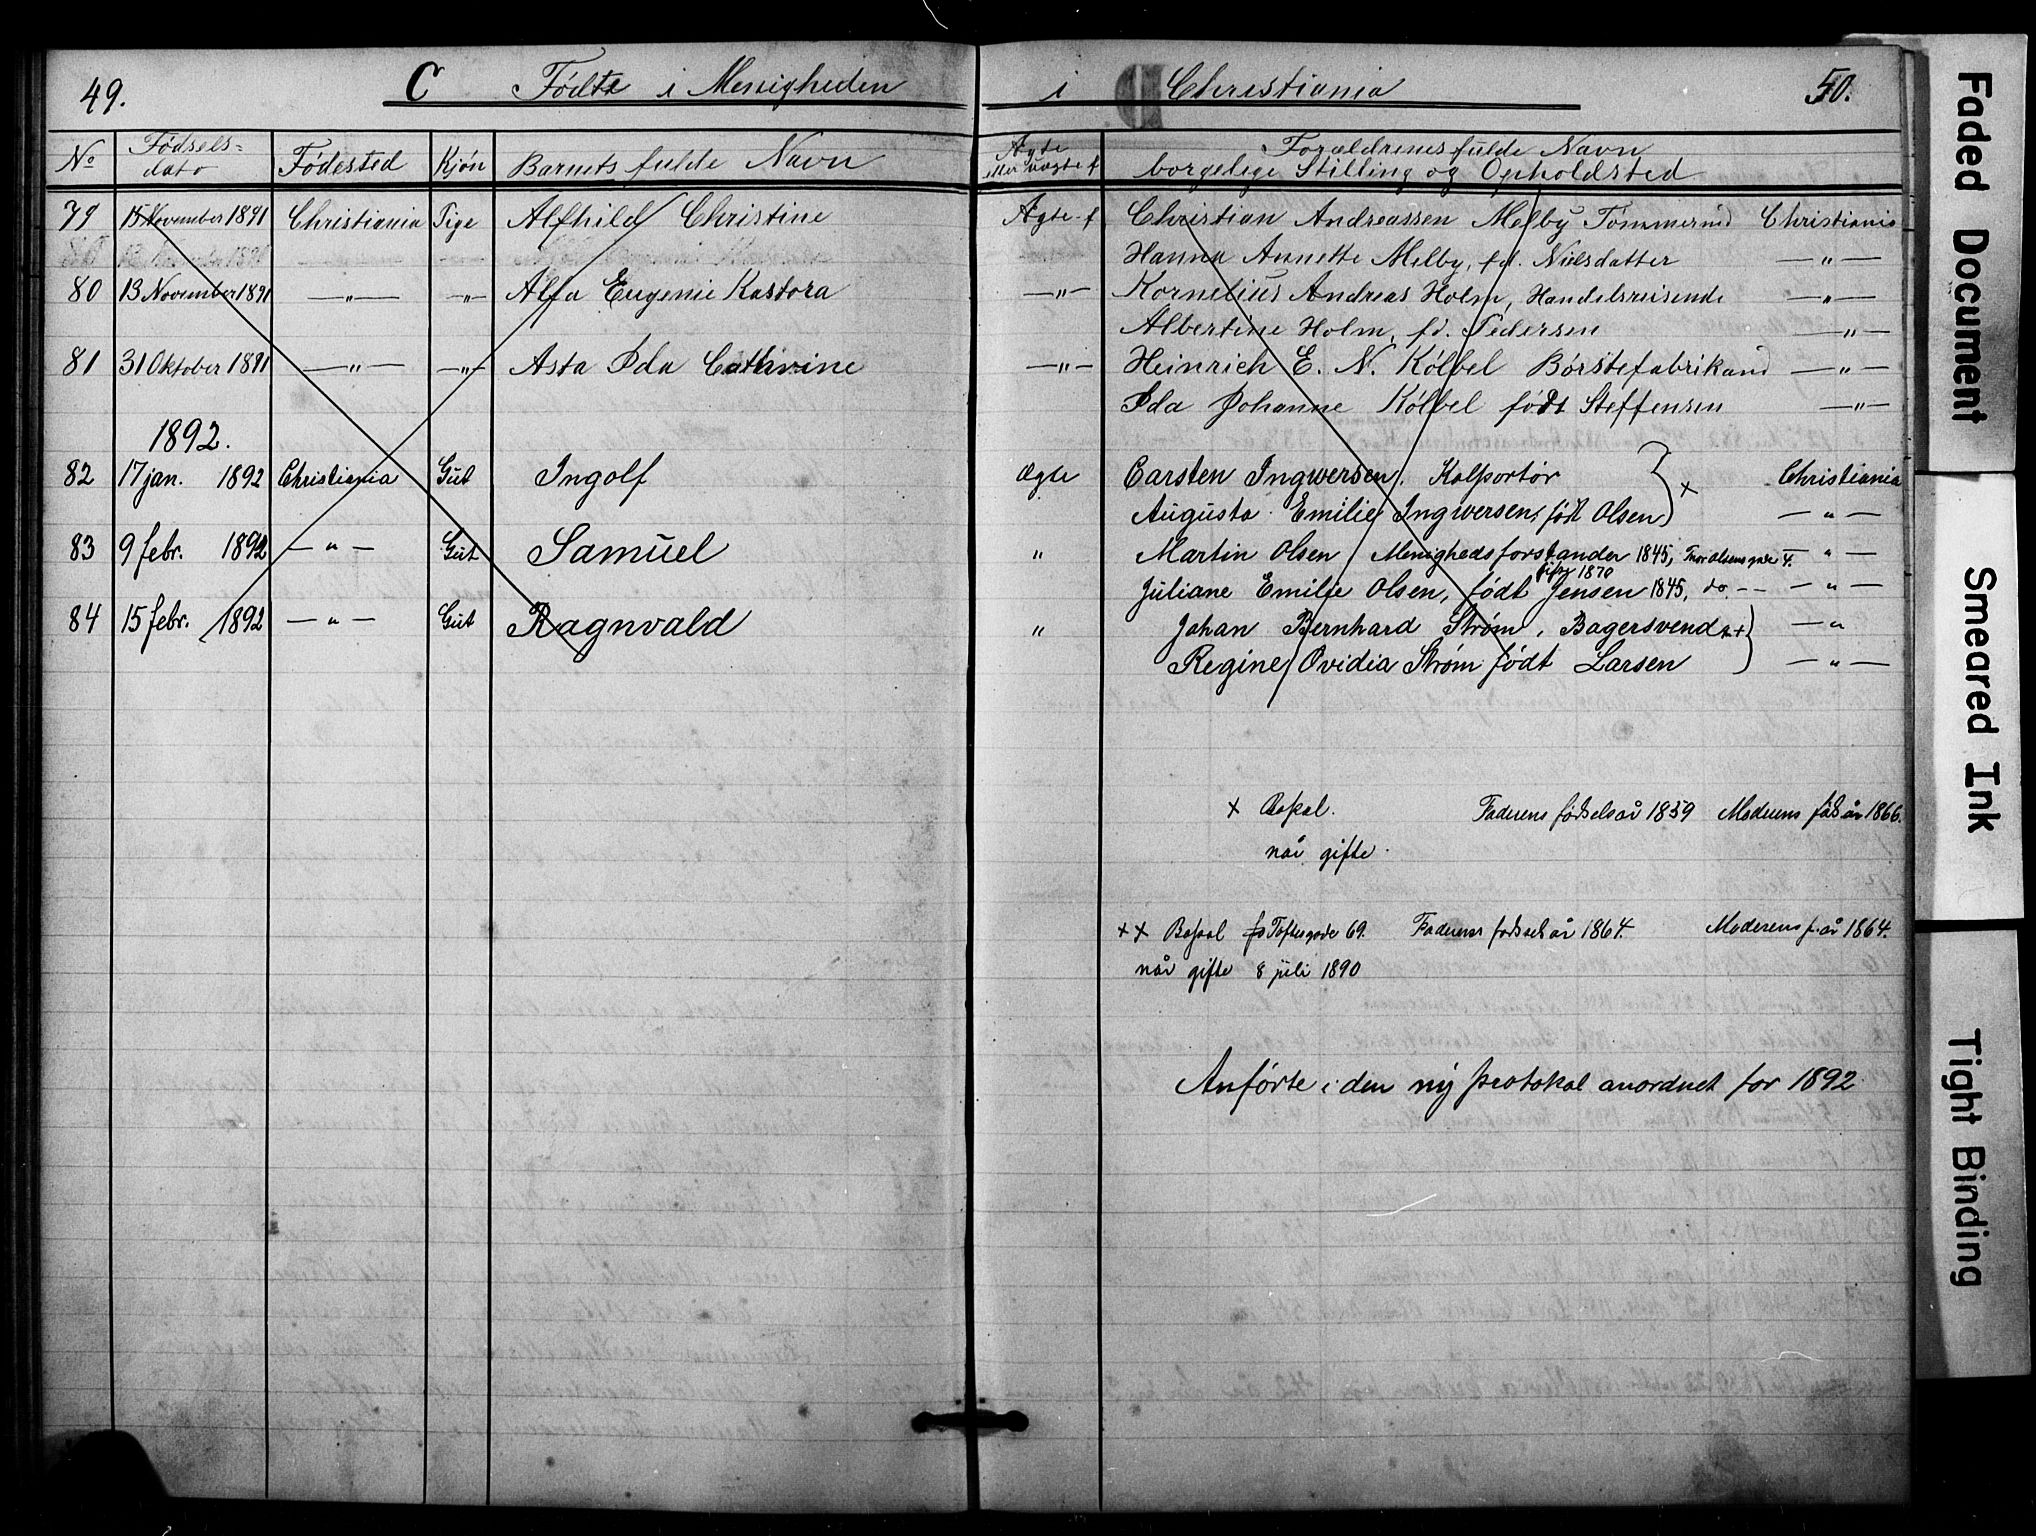 49. C Fødte i Menigheden i Christiania 50.
No Fødsels= dato Fødested Kjøn Barnets fulde Navn Ægte eller uægte f Forældrenes fulde Navn borgelige Stilling og Opholdsted
79 15 November 1891 Christiania Pige Alfhild Christine Ægte f Christian Andreassen Melby Tømmermd Christiania
Hanna Annette Melby, fd. Nielsdatter — " —
80 13 November 1891 — " — — " — Alfa Eugenie Kastora — " — Kornelius Andreas Holm, Handelsreisende — " —
Albertine Holm, fd. Pedersen — " —
81 31 Oktober 1891 — " — — " — Asta Ida Cathrine — " — Heinrich E. N. Kølbel Børstefabrikand — " —
Ida Johanne Kølbel født Steffensen — " —
1892.
82 17 jan. 1892 Christiania Gut Ingolf Ægte Carsten Ingwersen, Kolportør Christiania
Augusta Emilie Ingwersen, født Olsen x — " —
83 9 febr. 1892 — " — Gut Samuel " Martin Olsen Menighedsforstander 1845, Thor Olsensgade 4. — " —
gifte 1870
Juliane Emilie Olsen, født Jensen 1845, do. — — " —
84 15 febr. 1892 — " — Gut Ragnvald " Johan Bernhard Strøm, Bagersvend x+ — "
Regine Ovidia Strøm født Larsen — " —
x Bopal. Faderens fødselsår 1859 Moderens føds år 1866.
når gifte.
x x Bopæl Toftesgade 69. Faderens fødselsår 1864. Moderens f. år 1864.
når gifte 8 juli 1890
Anførte i den ny protokol anordnet for 1892
Faded Document
Smeared Ink
Tight Binding